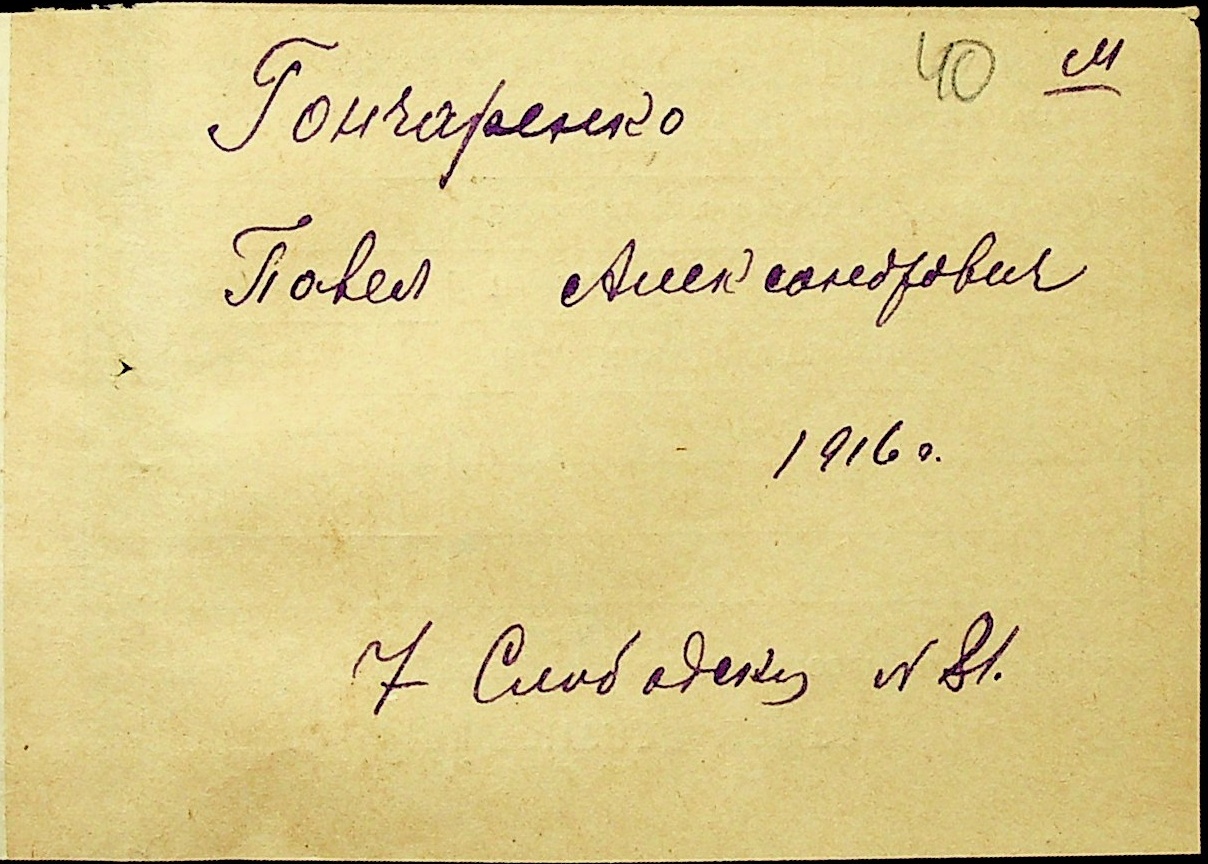 40 м
Гончаренко
Павел Александрович
1916 г.
7 Слободская N 81.